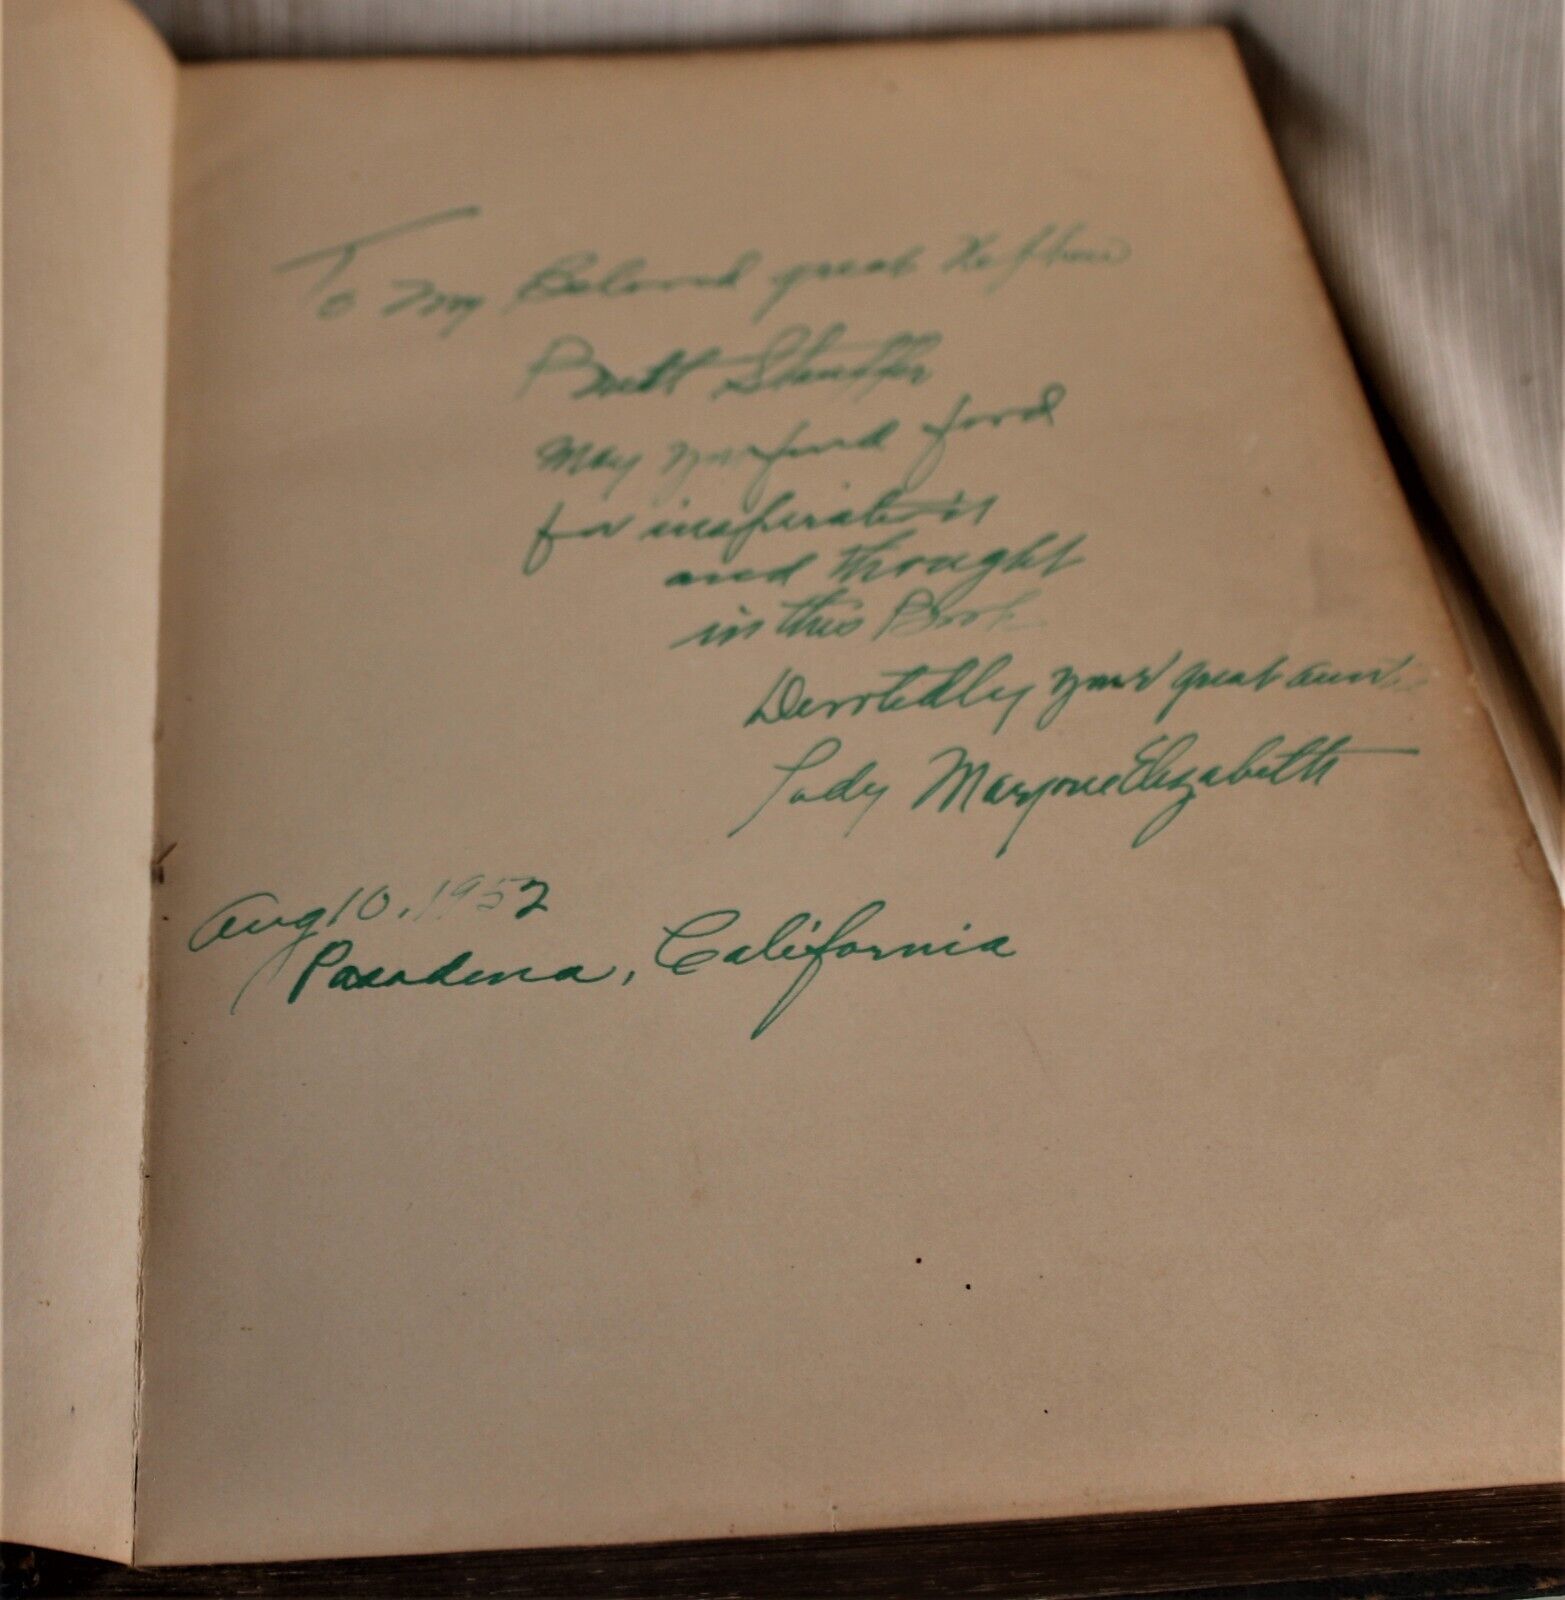 To my Beloved great Nephew
Brett Stauffer
May you find food
for inspiration
and thought
in this Book
Devotedly your great aunt
Lady Marjorie Elizabeth
Aug 10, 1952
Pasadena, California